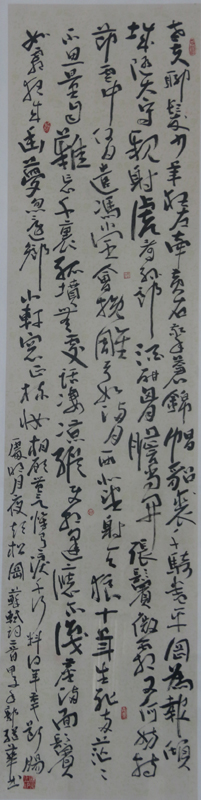 老夫聊發少年狂左牽黄右擎蒼錦帽貂裘千騎卷平岡為報傾
城隨太守親射虎看孫郎酒酣胸膽尚開張鬢微霜又何妨持
節雲中何日遣馮唐會挽雕弓如滿月西北望射天狼十年生死兩茫〻
不思量自難忘千里孤墳無處話淒涼縱使相逢應不識塵滿面鬢
如霜夜來幽夢忽還鄉小軒窗正梳妝相顧無言惟有淚千行料得年年斷腸
處明月夜短松岡 蘇軾詞二首 甲子 華書